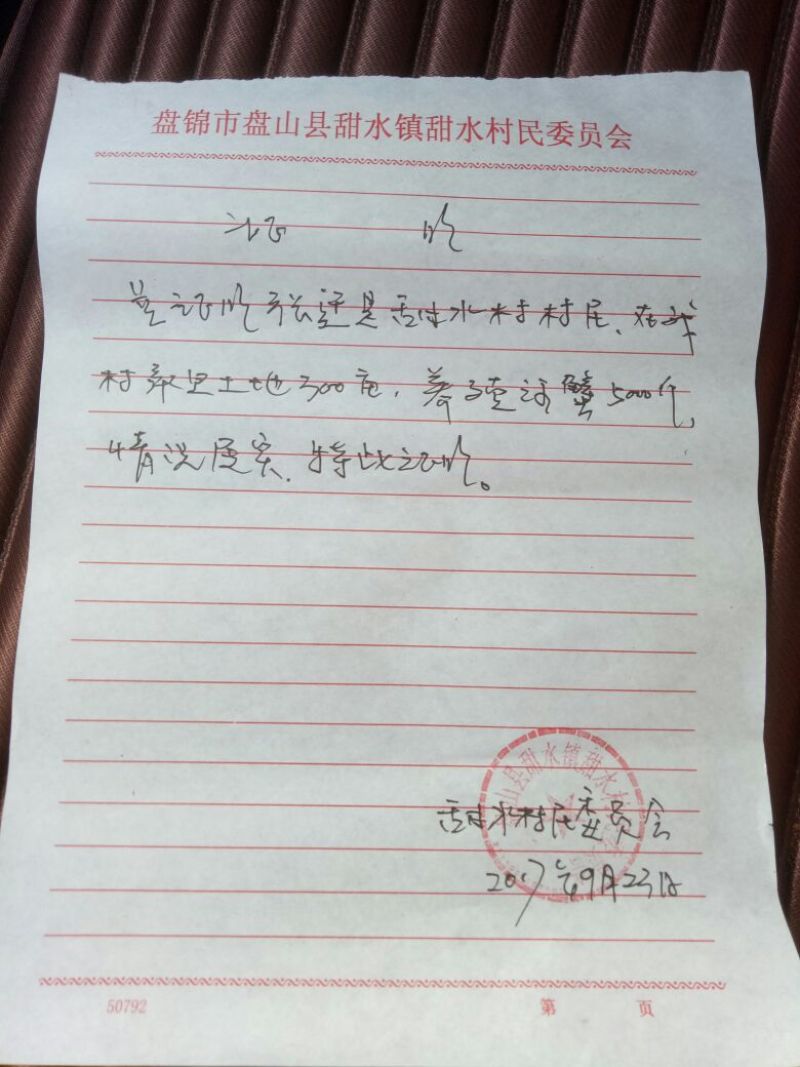 盘锦市盘山县甜水镇甜水村民委员会
证 明
兹证明张望是甜水村村民,在我
村承包土地300亩,养殖河蟹5000斤,
情况属实,特此证明。
山县甜水镇甜水村
甜水村民委员会
2017年9月23日
50792
第 页